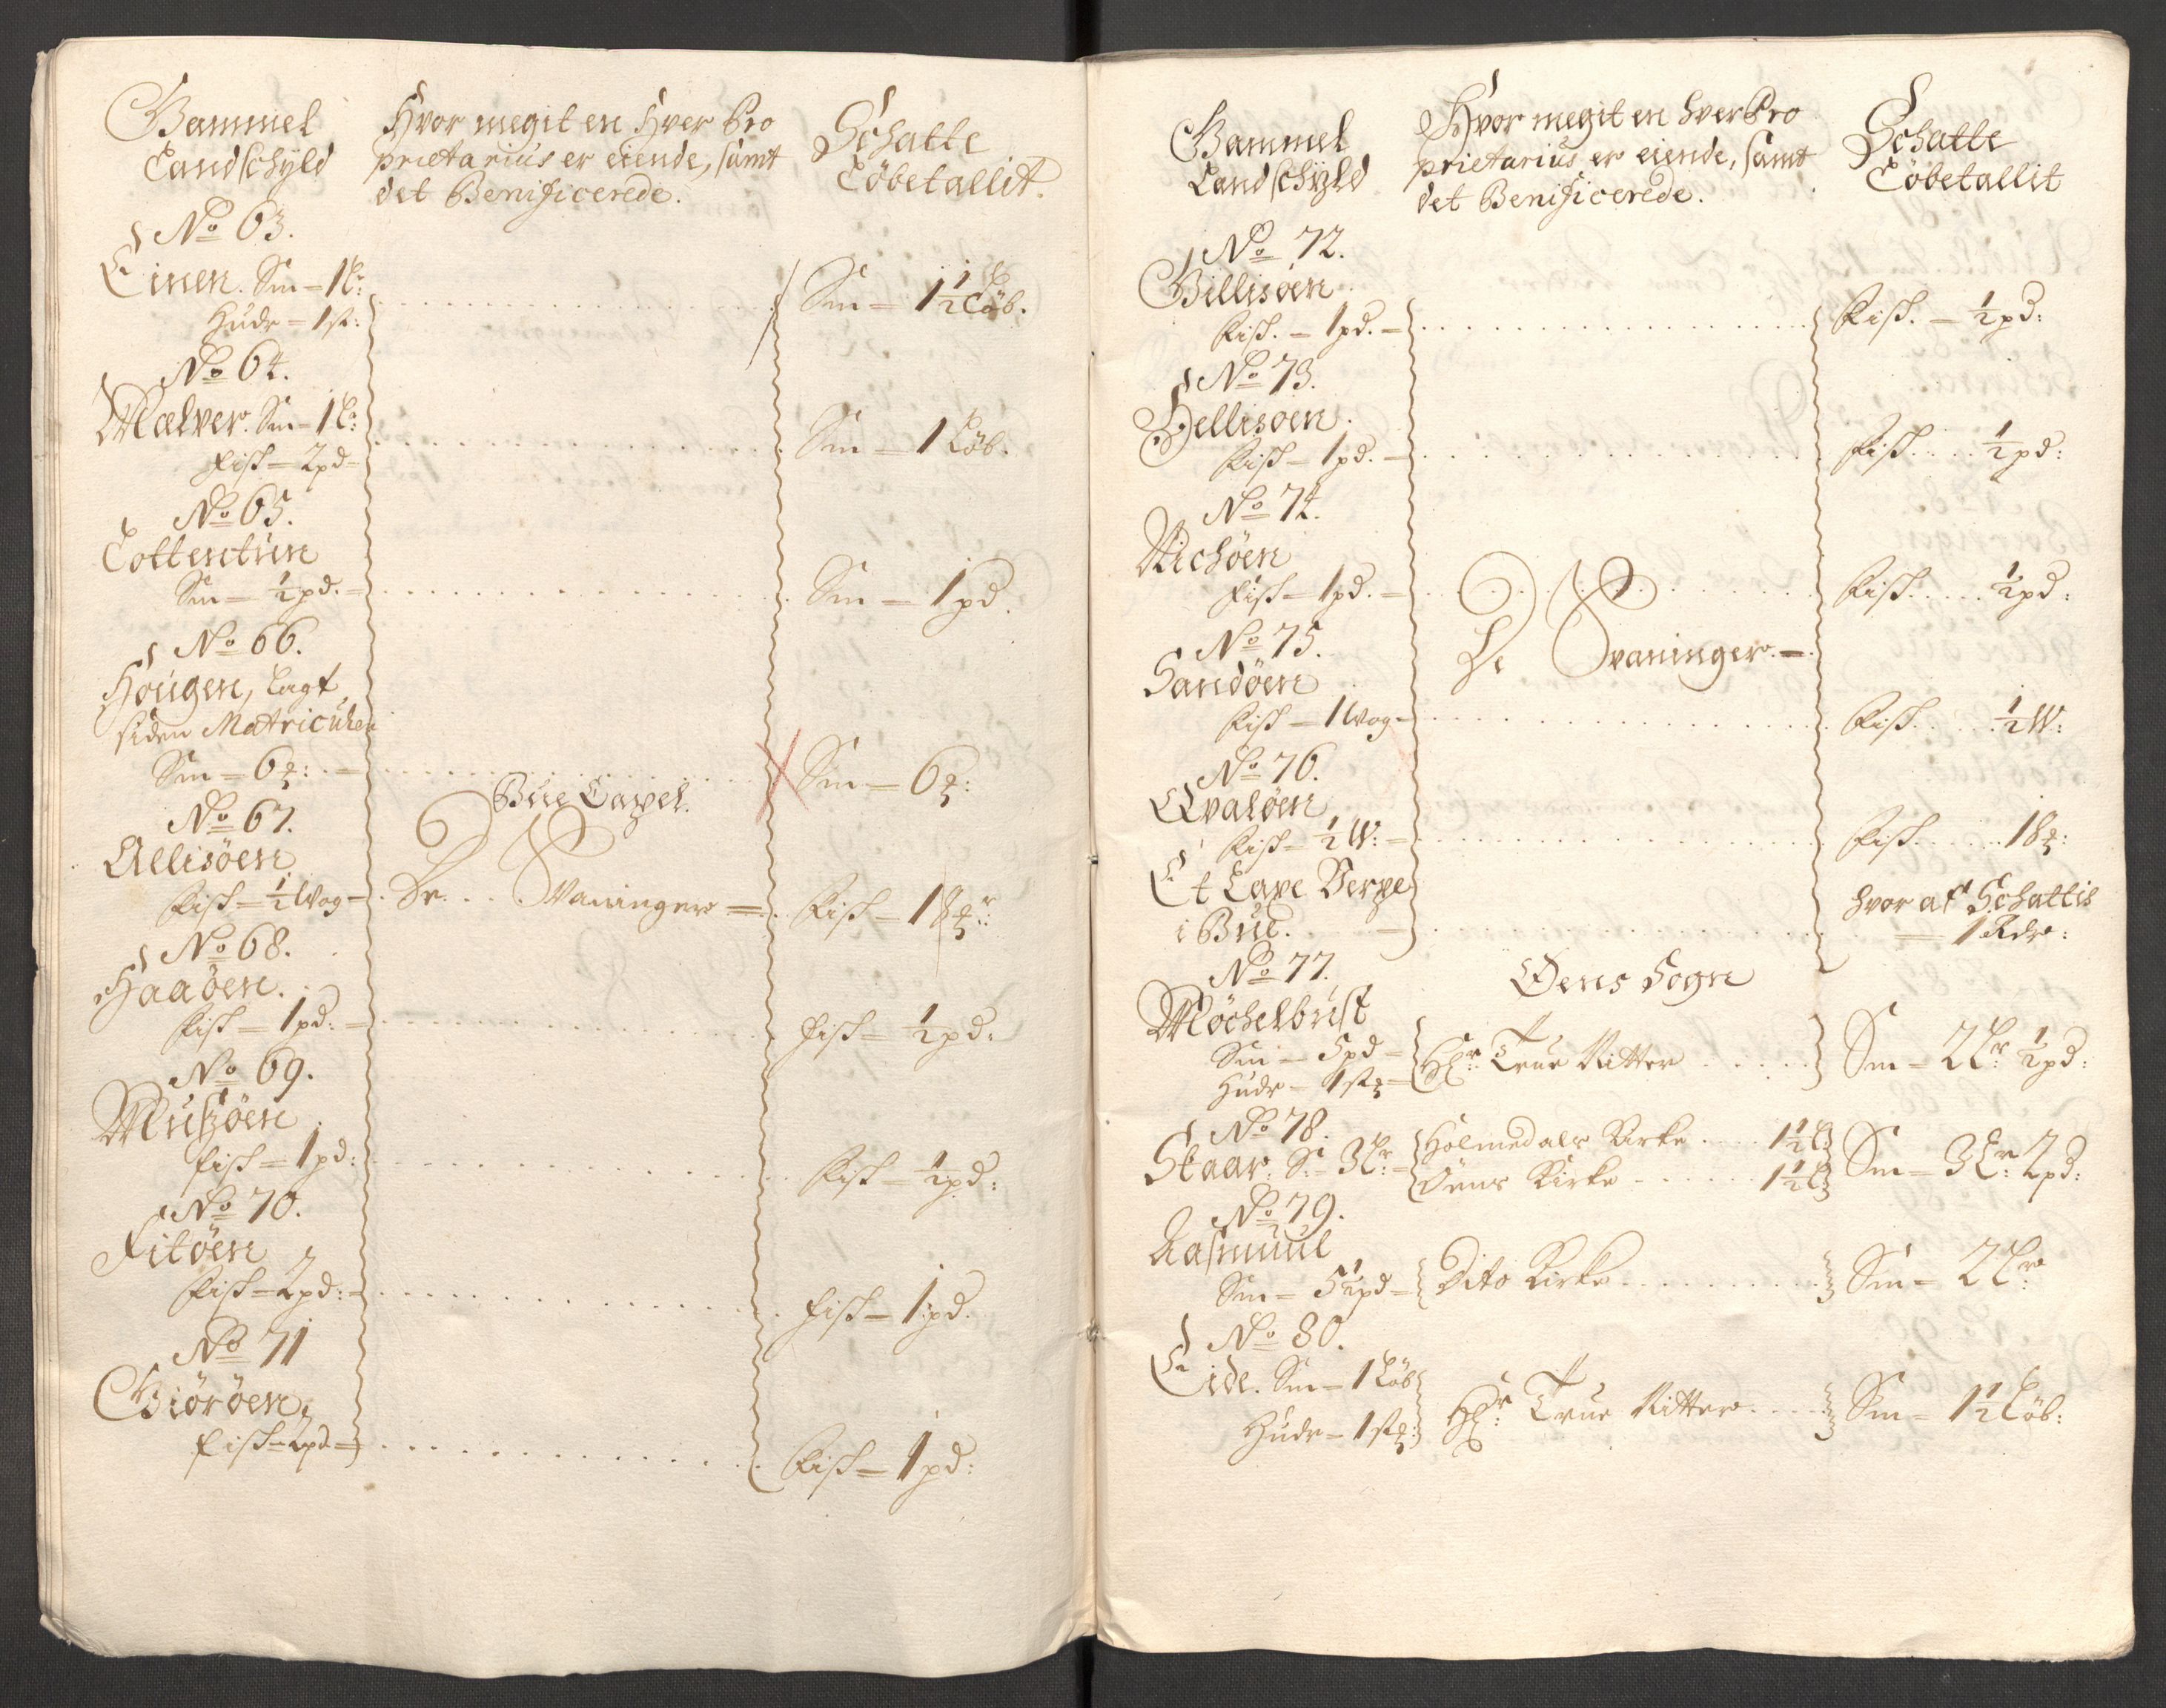 Gammel
Landschyld
Hvor megit en Hver Pro
prietarius er eiende, samt
det Benificerede.
Schatte
Löbetallit.
No 63.
Einen. Sm = 1 L:
Hude = 1 st:
Sm = 1½ Löb.
No 64.
Mælver. Sm = 1 L:
Fisk = 2 pd =
Sm = 1 Löb.
No 65.
Tottentün
Sm = ½ pd. =
Sm = 1 pd.
No 66.
Hougen, lagt
siden Matriculen
Sm = 6 ℔: =
Sm = 6 ℔:
Bue Capel.
No 67.
Allisöen
Fisk = ½ Wog =
De Svaninger =
Fisk = 18 ℔:
No 68.
Haaöen.
Fisk = 1 pd: =
Fisk = ½ pd:
No 69.
Musöen
Fisk = 1 pd:
Fisk = ½ pd:
No 70.
Fitöen
Fisk = 2 pd: =
Fisk = 1 pd.
No 71
Giöröen
Fisk = 2 pd =
Fisk = 1 pd:
Gammel
Landschyld
Hvor megit en hver Pro
prietarius er eiende, samt
det Benificerede.
Schatte
Löbetallit
No 72.
Gillisöen
Fisk. = 1 pd. =
Fisk. = ½ pd:
No 73.
Hellisöen.
Fisk = 1 pd. =
Fisk. ½ pd:
No 74.
Richöen
Fisk = 1 pd. =
Fisk. ½ pd:
No 75.
De Svaninger. =
Sandöen
Fisk = 1 Wog =
Fisk. ½ W:
No 76.
Qvalöen
Fisk = ½ W: =
Fisk. 18 ℔:
Et Laxe Verpe
i Bue. =
hvor af Schattis
= 1 Rdr:
No 77.
Öens Sogn
Möchelbust
Sm = 5 pd =
Hude = 1 st ℔ =
Hr: True Ritter
Sm = 2 Lr: ½ pd:
No 78.
Skaar: Sm: 3 Lr: =
Holmedals Kirke 1½ L
Öens Kirke 1½ L
Sm = 3 Lr: 2 pd:
No 79.
Aasmuul
Sm = 5½ pd =
Dito Kirke
Sm = 2 Lr
No 80.
Eide. Sm = 1 Löb
Hude = 1 st ℔:
Hr: True Ritter
Sm = 1½ Löb: